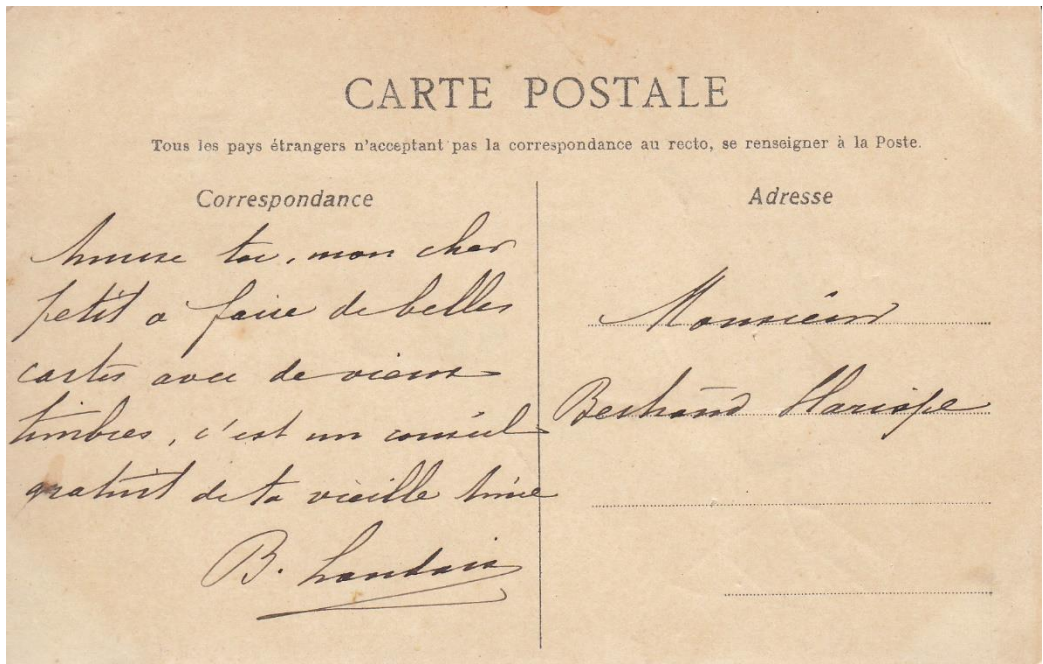 CARTE POSTALE
Tous les pays étrangers n'acceptant pas la correspondance au recto, se renseigner à la Poste.
Correspondance
Amuse toi, mon cher
petit a faire de belles
cartes avec de vieux
timbres, c'est un conseil
gratuit de ta vieille Amie
B.
Adresse
Monsieur
Bertrand